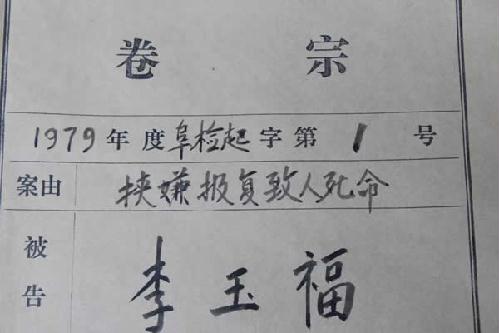 卷宗
1979年度阜检起字第1号
案由 挟嫌报复致人死命
被告 李玉福